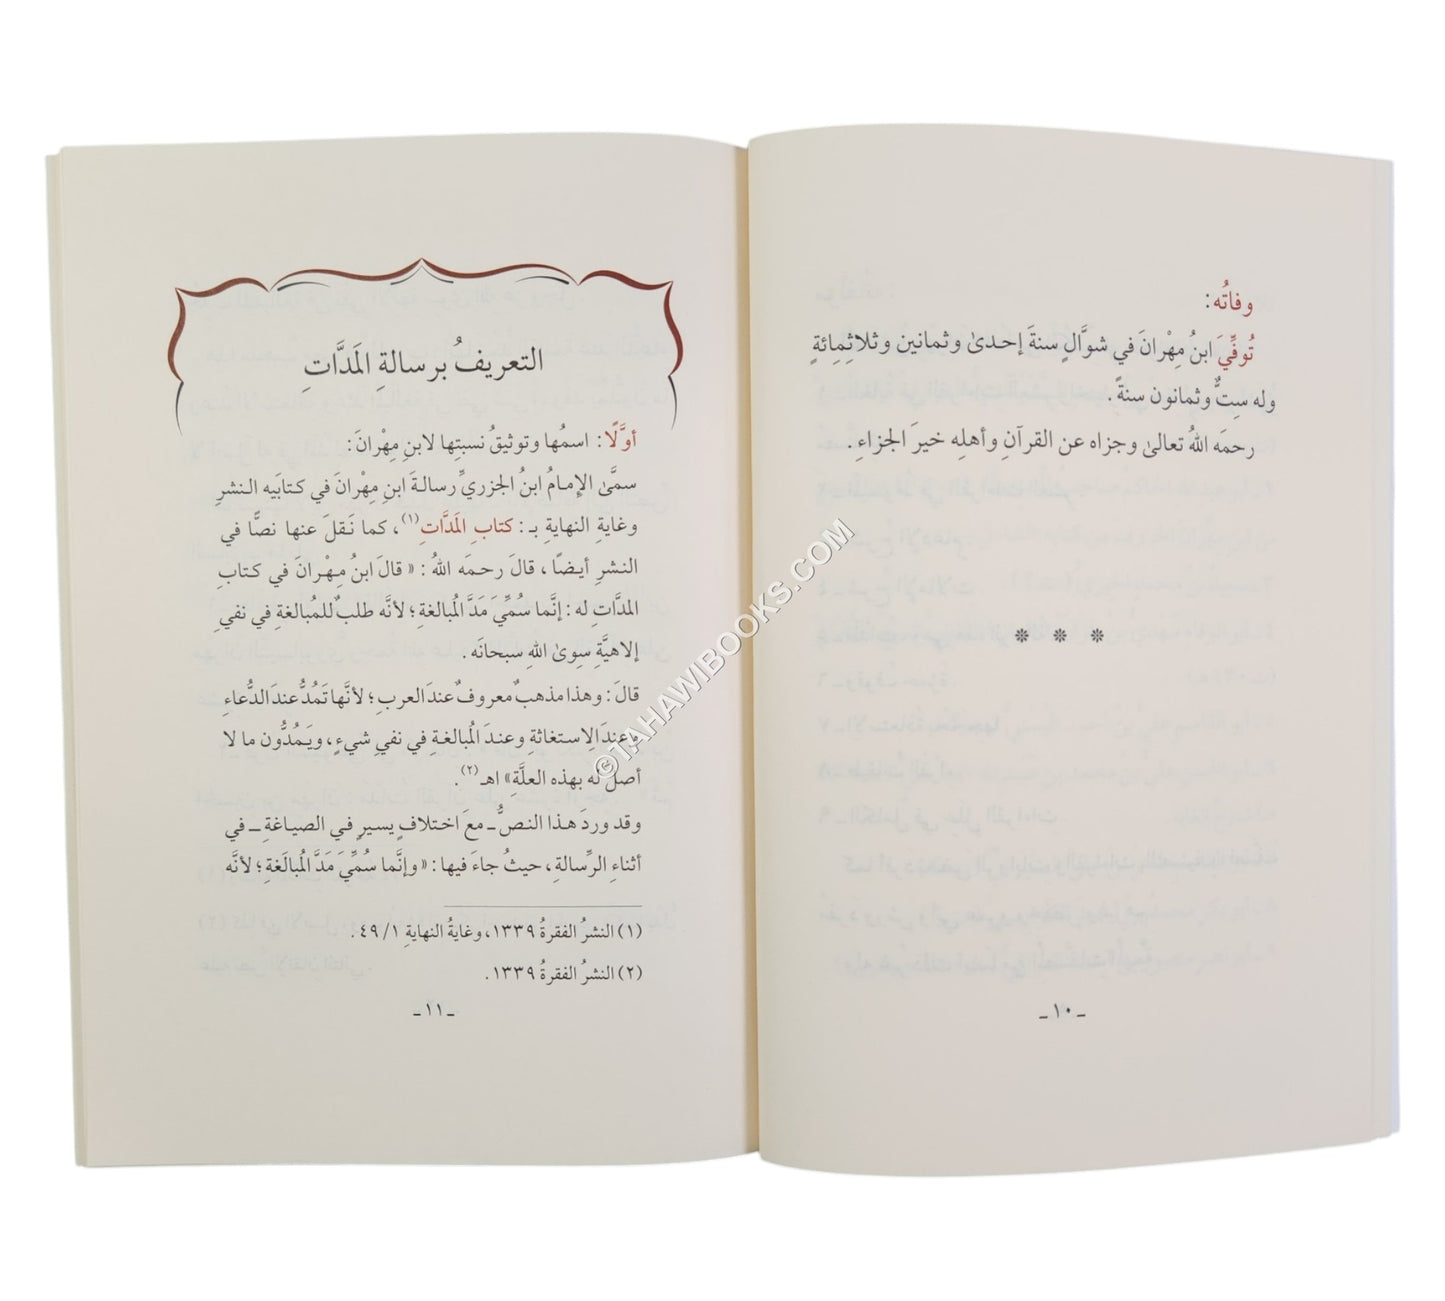 وفاتُه :
تُوفِّيَ ابنُ مِهْرانَ في شوَّالٍ سنةَ إحدىٰ وثمانين وثلاثِمِائةٍ
وله سِتٌّ وثمانون سنةً .
رحمَه اللهُ تعالىٰ وجزاه عن القرآنِ وأهلِه خيرَ الجزاءِ .
* * *
ـ ١٠ ـ
التعريفُ برسالةِ المَدَّاتِ
أوَّلًا : اسمُها وتوثيقُ نسبتِها لابنِ مِهْرانَ :
سمَّىٰ الإمامُ ابنُ الجزريِّ رسالةَ ابنِ مِهْرانَ في كتابَيه النشرِ
وغايةِ النهايةِ بـ : كتابِ المَدَّاتِ(١)، كما نَقلَ عنها نصًّا في
النشرِ أيضًا ، قالَ رحمَه اللهُ : « قالَ ابنُ مِهْرانَ في كتابِ
المدَّاتِ له : إنَّما سُمِّيَ مَدَّ المُبالغةِ ؛ لأنَّه طلبٌ للمُبالغةِ في نفيِ
إلاهيَّةِ سِوىٰ اللهِ سبحانَه .
قالَ : وهذا مذهبٌ معروفٌ عندَ العربِ ؛ لأنَّها تَمُدُّ عندَ الدُّعاءِ
وعندَ الاستغاثةِ وعندَ المُبالغةِ في نفيِ شيءٍ ، ويَمُدُّون ما لا
أصلَ له بهذه العلَّةِ » اهـ(٢).
وقد وردَ هذا النصُّ ـ معَ اختلافٍ يسيرٍ في الصياغةِ ـ في
أثناءِ الرِّسالةِ ، حيثُ جاءَ فيها : « وإنَّما سُمِّيَ مَدَّ المُبالَغةِ ؛ لأنَّه
(١) النشرُ الفقرةُ ١٣٣٩، وغايةُ النهايةِ ١/ ٤٩ .
(٢) النشرُ الفقرةُ ١٣٣٩ .
ـ ١١ ـ
©TAHAWIBOOKS.COM